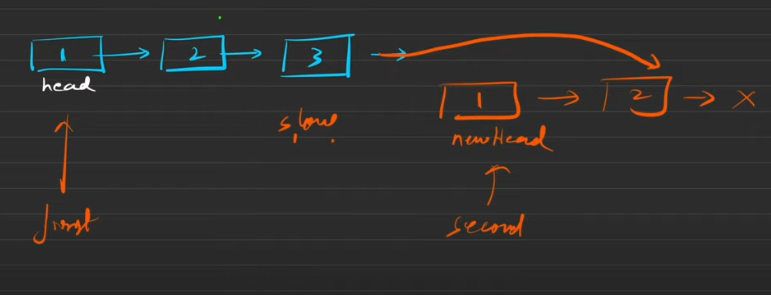 1 2 3
head
1 2 X
slow
newHead
first
second